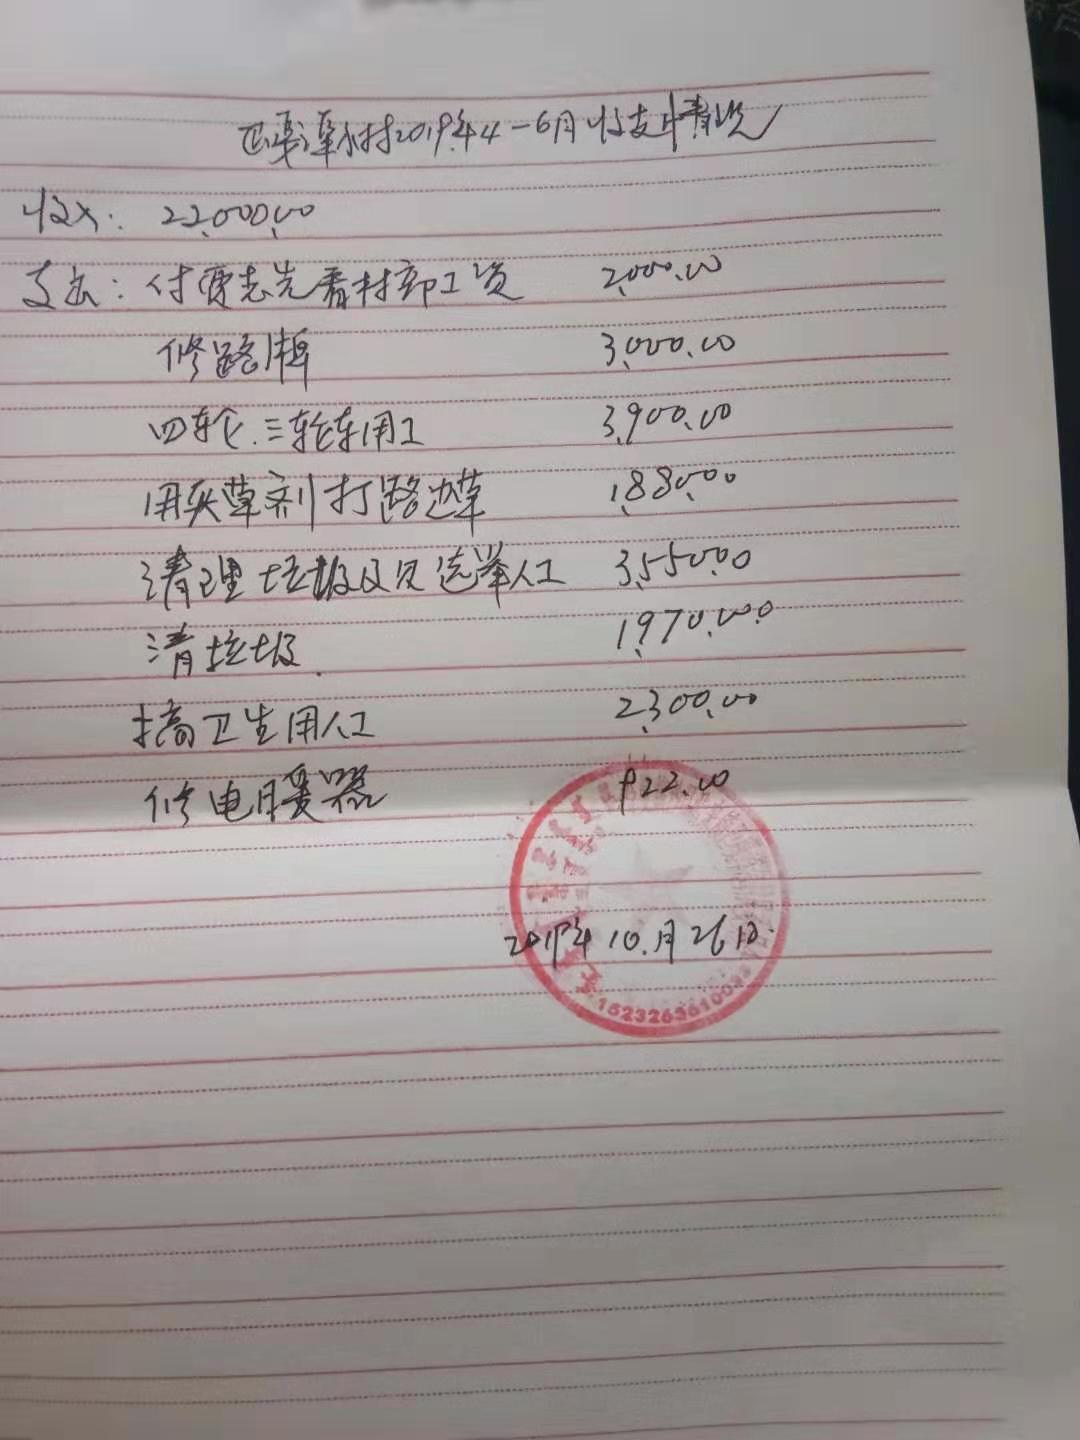 村2019年4-6月收支情况
收入: 22,000.00
支出: 付贾志先看村部工资 2,000.00
修路牌 3,000.00
四轮.三轮车用工 3,900.00
用灭草剂打路边草 1,880.00
清理垃圾及选举人工 3,550.00
清垃圾 1,970.00
搞卫生用人工 2,300.00
修电暖器 922.00
2019年10.月26日.